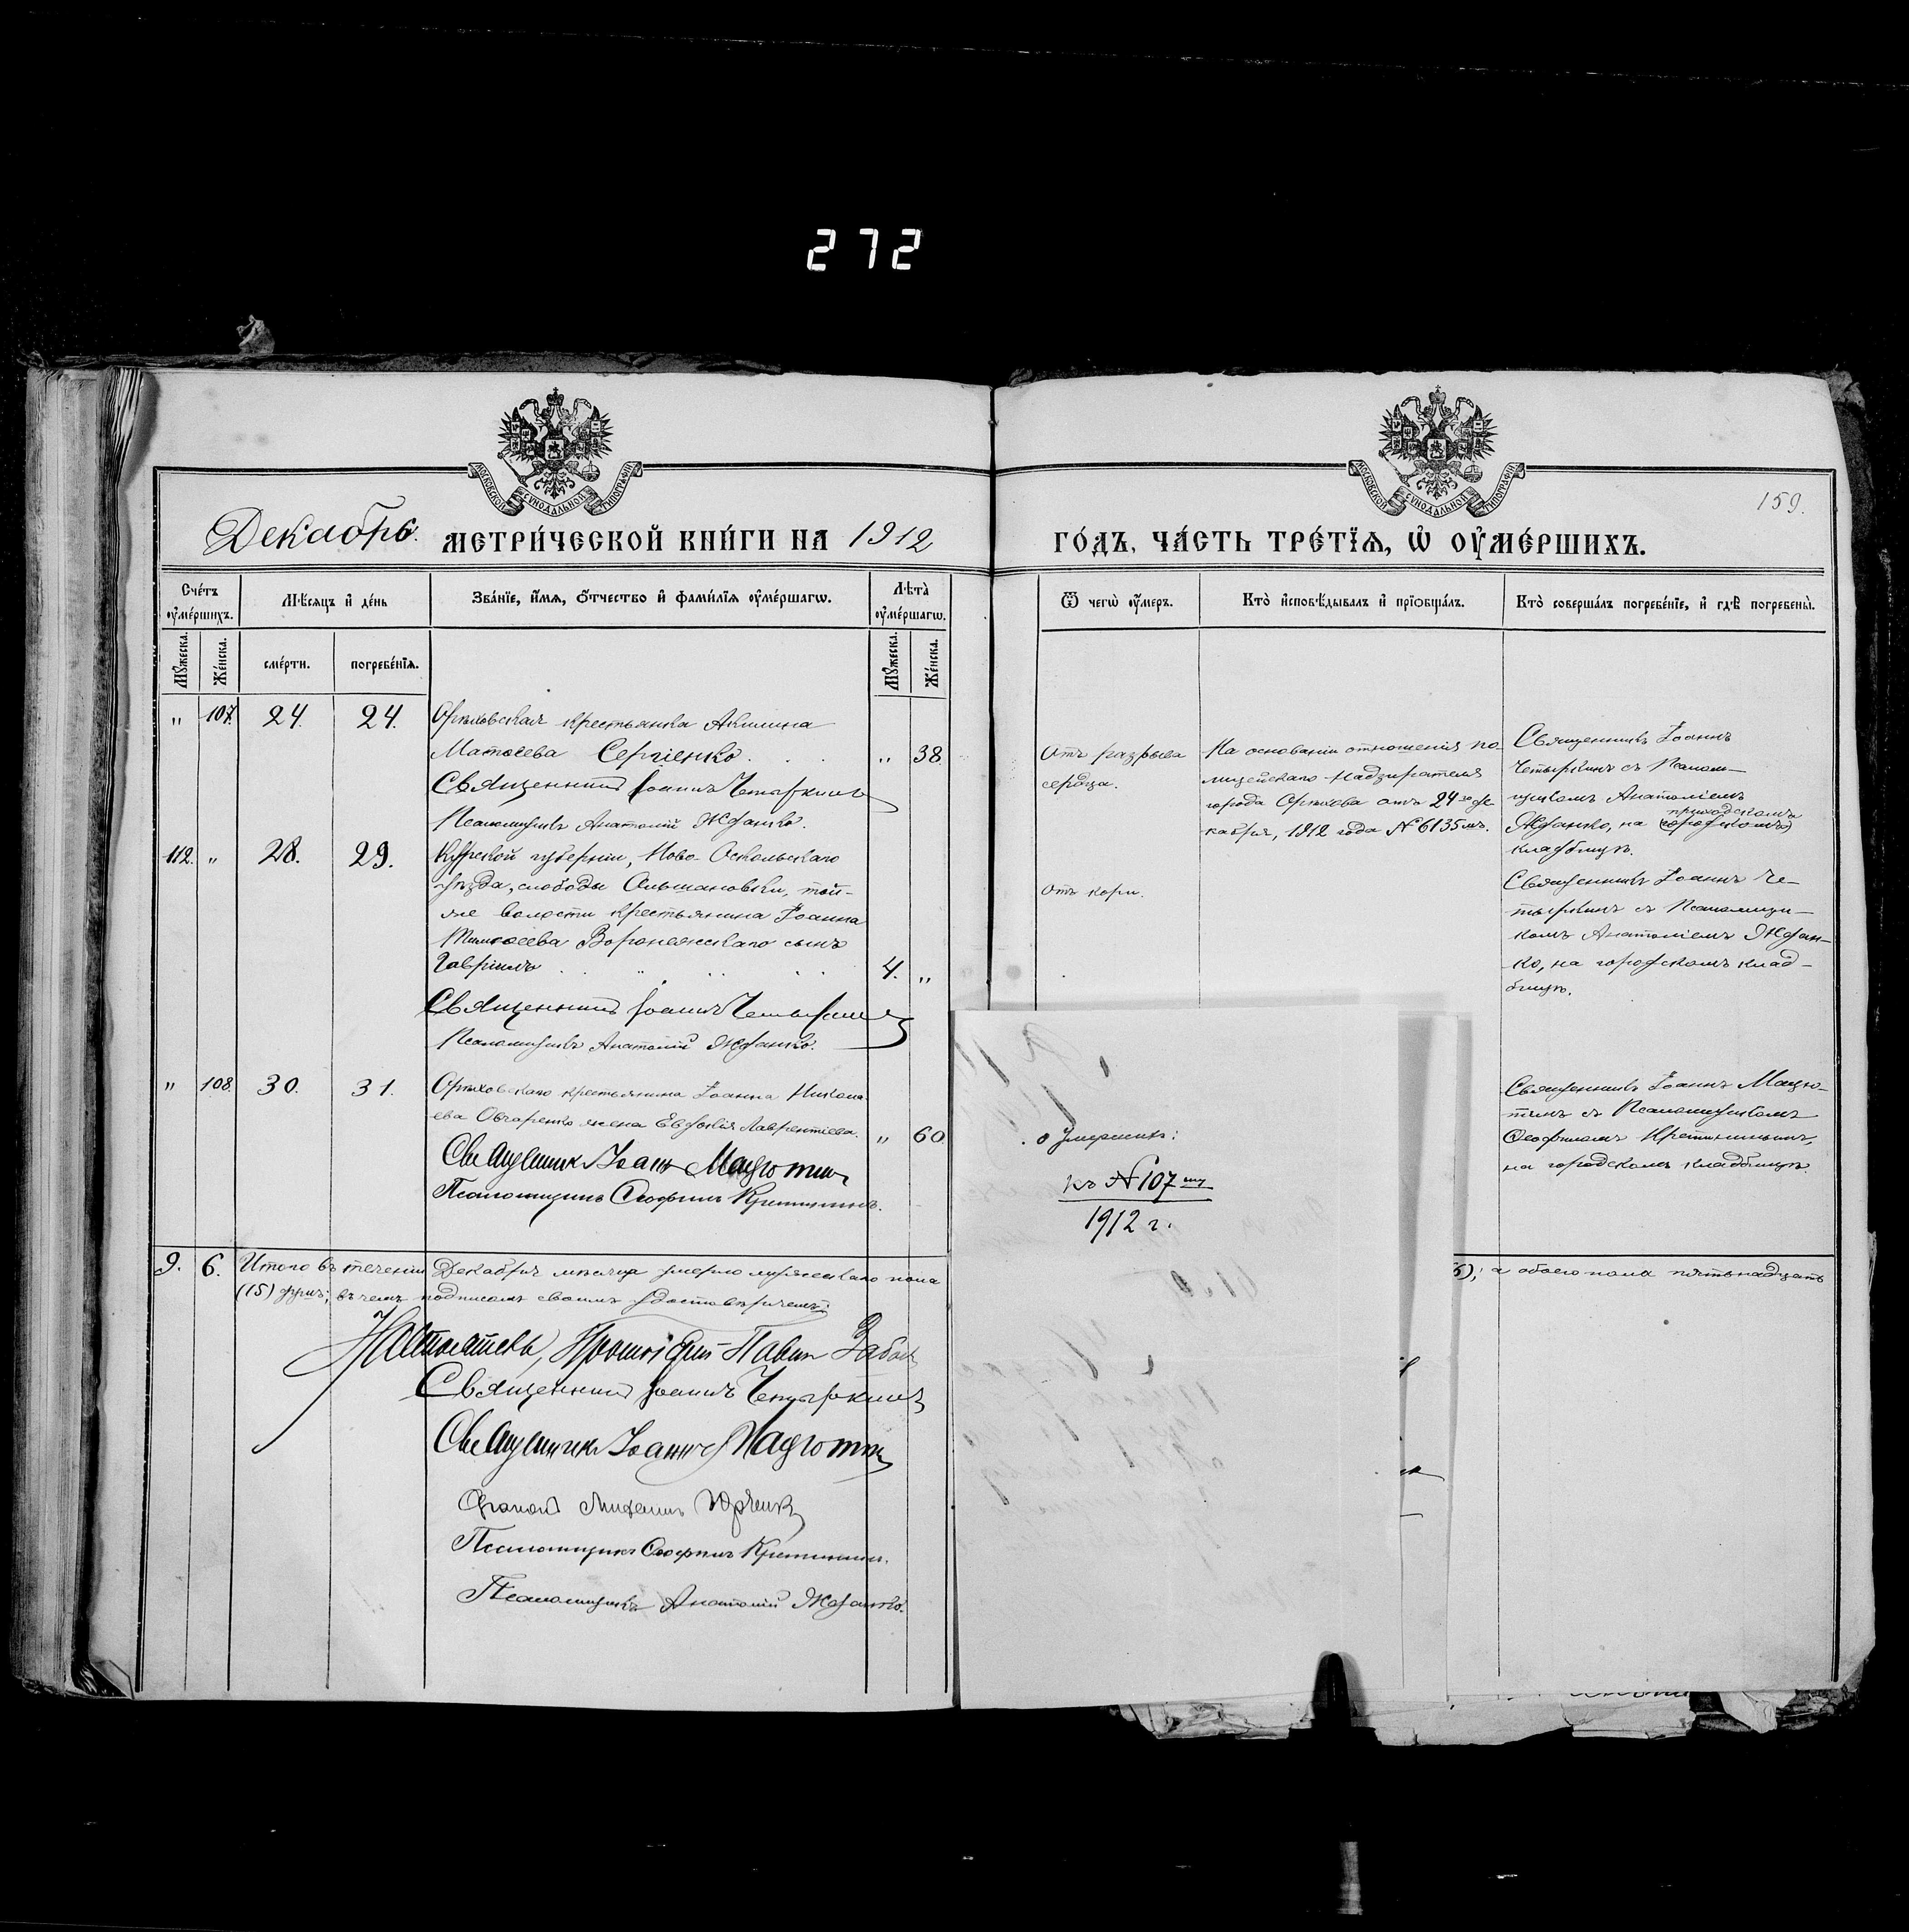 272
МОСКОВСКОЙ СѴНОДАЛЬНОЙ ТИПОГРАФІИ
МОСКОВСКОЙ СѴНОДАЛЬНОЙ ТИПОГРАФІИ
159.
Декабрь. МЕТРИ́ЧЕСКОЙ КНИ́ГИ НА 1912
ГО́ДЪ, ЧА́СТЬ ТРЕ́ТІЯ, Ѽ ОУ҆МЕ́РШИХЪ.
Сче́тъ оу҆ме́ршихъ.
Мꙋжеска.
Же́нска.
Мѣ́сяцъ и҆ де́нь
сме́рти.
погребе́нїѧ.
Зва́нїе, и҆́мѧ, ѻ҆́тчество и҆ фами́лїѧ оу҆ме́ршагѡ.
Лѣ́та̀ оу҆ме́ршагѡ.
Мꙋжеска.
Же́нска.
Ѿ чегѡ̀ оу҆́меръ.
Кто̀ и҆сповѣ́дывалъ и҆ прїѡбща́лъ.
Кто̀ соверша́лъ погребе́нїе, и҆ гдѣ̀ погребены̀.
" 107. 24. 24. Орѣховская крестьянка Акилина
Матѳеева Сергіенко . . . " 38.
Священникъ Іоаннъ Четыркинъ
Псаломщикъ Анатолій Жданко.
Отъ разрыва
сердца.
На основаніи отношенія по-
лицейскаго надзирателя
города Орѣхова отъ 24го де
кабря, 1912 года № 6135мъ.
Священникъ Іоаннъ
Четыркинъ съ Псалом-
щикомъ Анатоліемъ
приходскомъ
Жданко, на (городскомъ)
кладбищѣ.
112. " 28. 29. Курской губерніи, Ново-Оскольскаго
уѣзда, слободы Ольшановки, той-
же волости крестьянина Іоанна
Матѳеева Воронежскаго сынъ
Гавріилъ . . . 4. "
Священникъ Іоаннъ Четыркинъ
Псаломщикъ Анатолій Жданко.
Отъ кори.
Священникъ Іоаннъ Че-
тыркинъ съ Псаломщи-
комъ Анатоліемъ Ждан-
ко, на городскомъ клад-
бищѣ.
" 108. 30. 31. Орѣховскаго крестьянина Іоанна Никола
ева Овчаренко жена Евдокія Лаврентіева. " 60.
Священникъ Іоаннъ Мацютинъ
Псаломщикъ Ѳеофилъ Кретининъ.
Священникъ Іоаннъ Мацю-
тинъ съ Псаломщикомъ
Ѳеофиломъ Кретининымъ,
на городскомъ кладбищѣ.
о умершихъ:
къ № 107му
1912 г.
9. 6. Итого въ теченіи Декабря мѣсяца умерло мужескаго пола
5); а обоего пола пятьнадцать
(15) душъ; въ чемъ подписомъ своимъ удостовѣряемъ:
Настоятель, Протоіерей Павелъ
Священникъ Іоаннъ Четыркинъ
Священникъ Іоаннъ Мацютинъ
Діаконъ Михаилъ
Псаломщикъ Ѳеофилъ Кретининъ.
Псаломщикъ Анатолій Жданко.